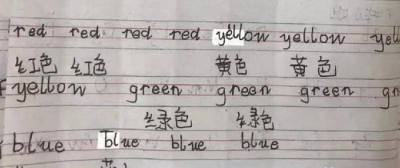 red red red red yellow yellow
红色 红色 黄色 黄色
yellow green green green
绿色 绿色
blue blue blue blue